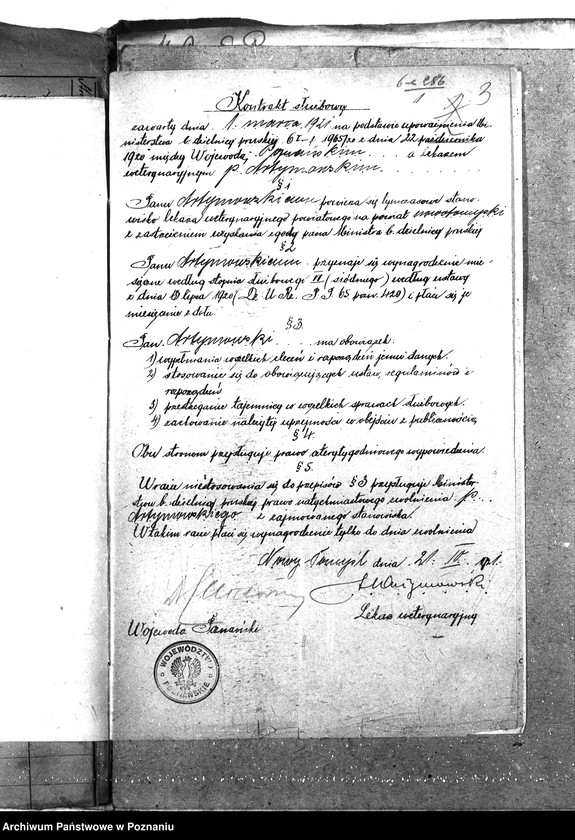 6-e 286
1
3
Kontrakt służbowy
zawarty dnia 1. marca 1921 na podstawie upoważnienia Mi-
nisterstwa b. dzielnicy pruskiej 6 I-1 1965/20 z dnia 22 października
1920 między Wojewodą Poznańskim . . . a lekarzem
weterynaryjnym p. Artymowskim.
§ 1
Panu Artymowskiemu powierza się tymczasowo stano-
wisko lekarza weterynaryjnego powiatowego na powiat nowotomyski
z zastrzeżeniem uzyskania zgody pana Ministra b. dzielnicy pruskiej
§ 2
Panu Artymowskiemu przyznaje się wynagrodzenie mie-
sięczne według stopnia służbowego VII (siódmego) według ustawy
z dnia 13 lipca 1920 (Dz. U. Rz. P. P. 65 poz. 429) i płaci się je
miesięcznie z dołu.
§ 3.
Pan Artymowski . . . ma obowiązek:
1) wypełniania wszelkich zleceń i rozporządzeń jemu danych.
2) stosowanie się do obowiązujących ustaw, regulaminów i
rozporządzeń
3) przestrzeganie tajemnicy w wszelkich sprawach służbowych.
4) zachowanie należytej uprzejmości w obejściu z publicznością
§ 4.
Obu stronom przysługuje prawo czterotygodniowego wypowiedzenia.
§ 5.
W razie niestosowania się do przepisów § 3 przysługuje Minister-
stwu b. dzielnicy pruskiej prawo natychmiastowego zwolnienia p.
Artymowskiego z zajmowanego stanowiska.
W takim razie płaci się wynagrodzenie tylko do dnia zwolnienia
Nowy Tomyśl dnia 21. IV. 1921.
Lekarz weterynaryjny
Wojewoda Poznański
WOJEWÓDZTWO
POZNAŃSKIE
Archiwum Państwowe w Poznaniu